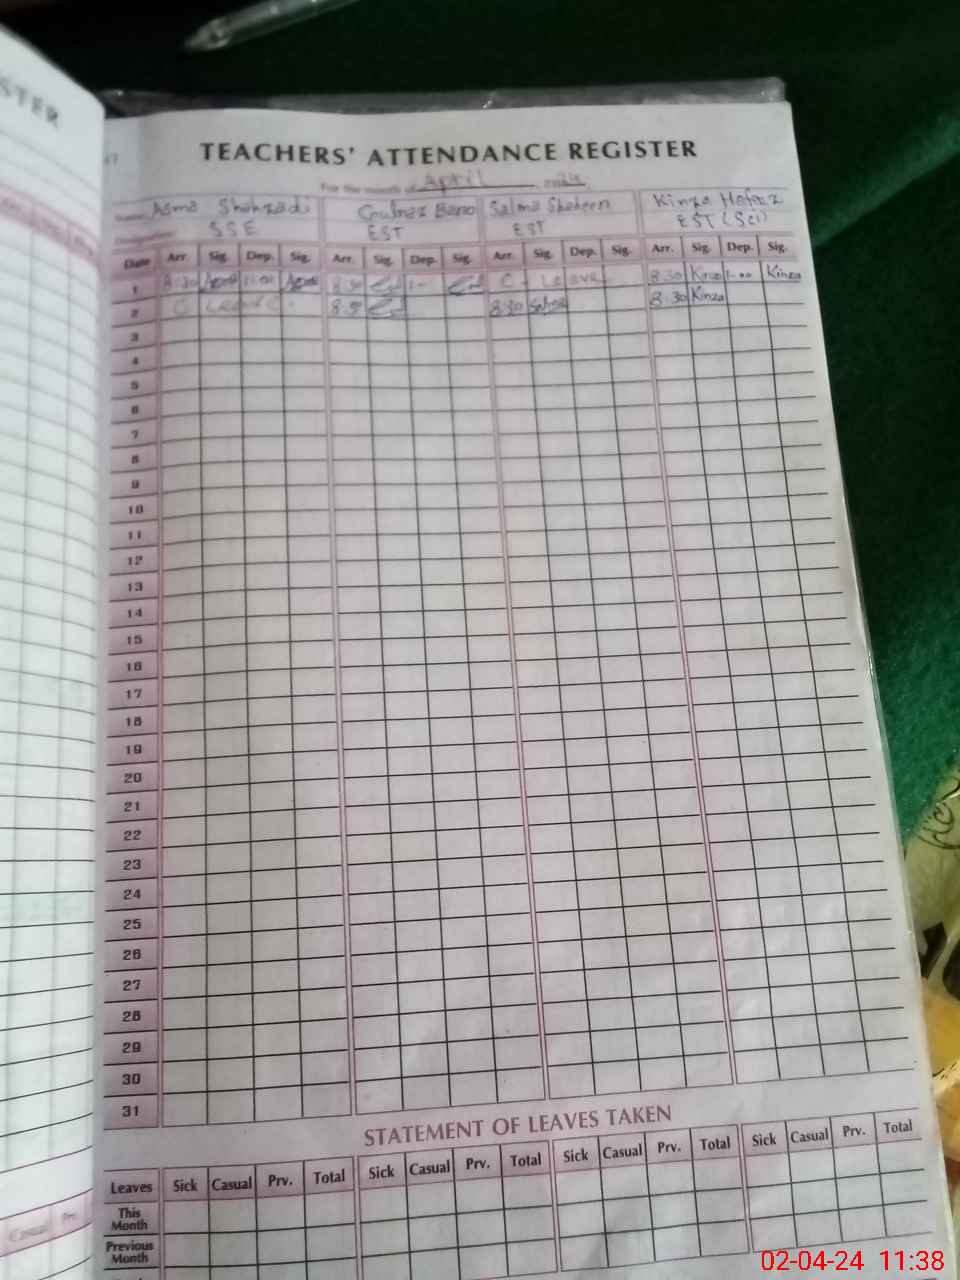 STER
TEACHERS' ATTENDANCE REGISTER
For the month of April 2024
Name Asma Shahzadi Gulnaz Bano Salma Shaheen Kinza Hafeez
Designation SSE EST EST EST (Sci)
Date Arr. Sig. Dep. Sig. Arr. Sig. Dep. Sig. Arr. Sig. Dep. Sig. Arr. Sig. Dep. Sig.
1 8:30 11:00 8:30 1- C - Leave 8:30 Kinza 1-00 Kinza
2 C Leave 8:30 8:30 Salma 8:30 Kinza
3
4
5
6
7
8
9
10
11
12
13
14
15
16
17
18
19
20
21
22
23
24
25
26
27
28
29
30
31
STATEMENT OF LEAVES TAKEN
Leaves Sick Casual Prv. Total Sick Casual Prv. Total Sick Casual Prv. Total Sick Casual Prv. Total
This Month
Previous Month
Casual Prv.
02-04-24 11:38